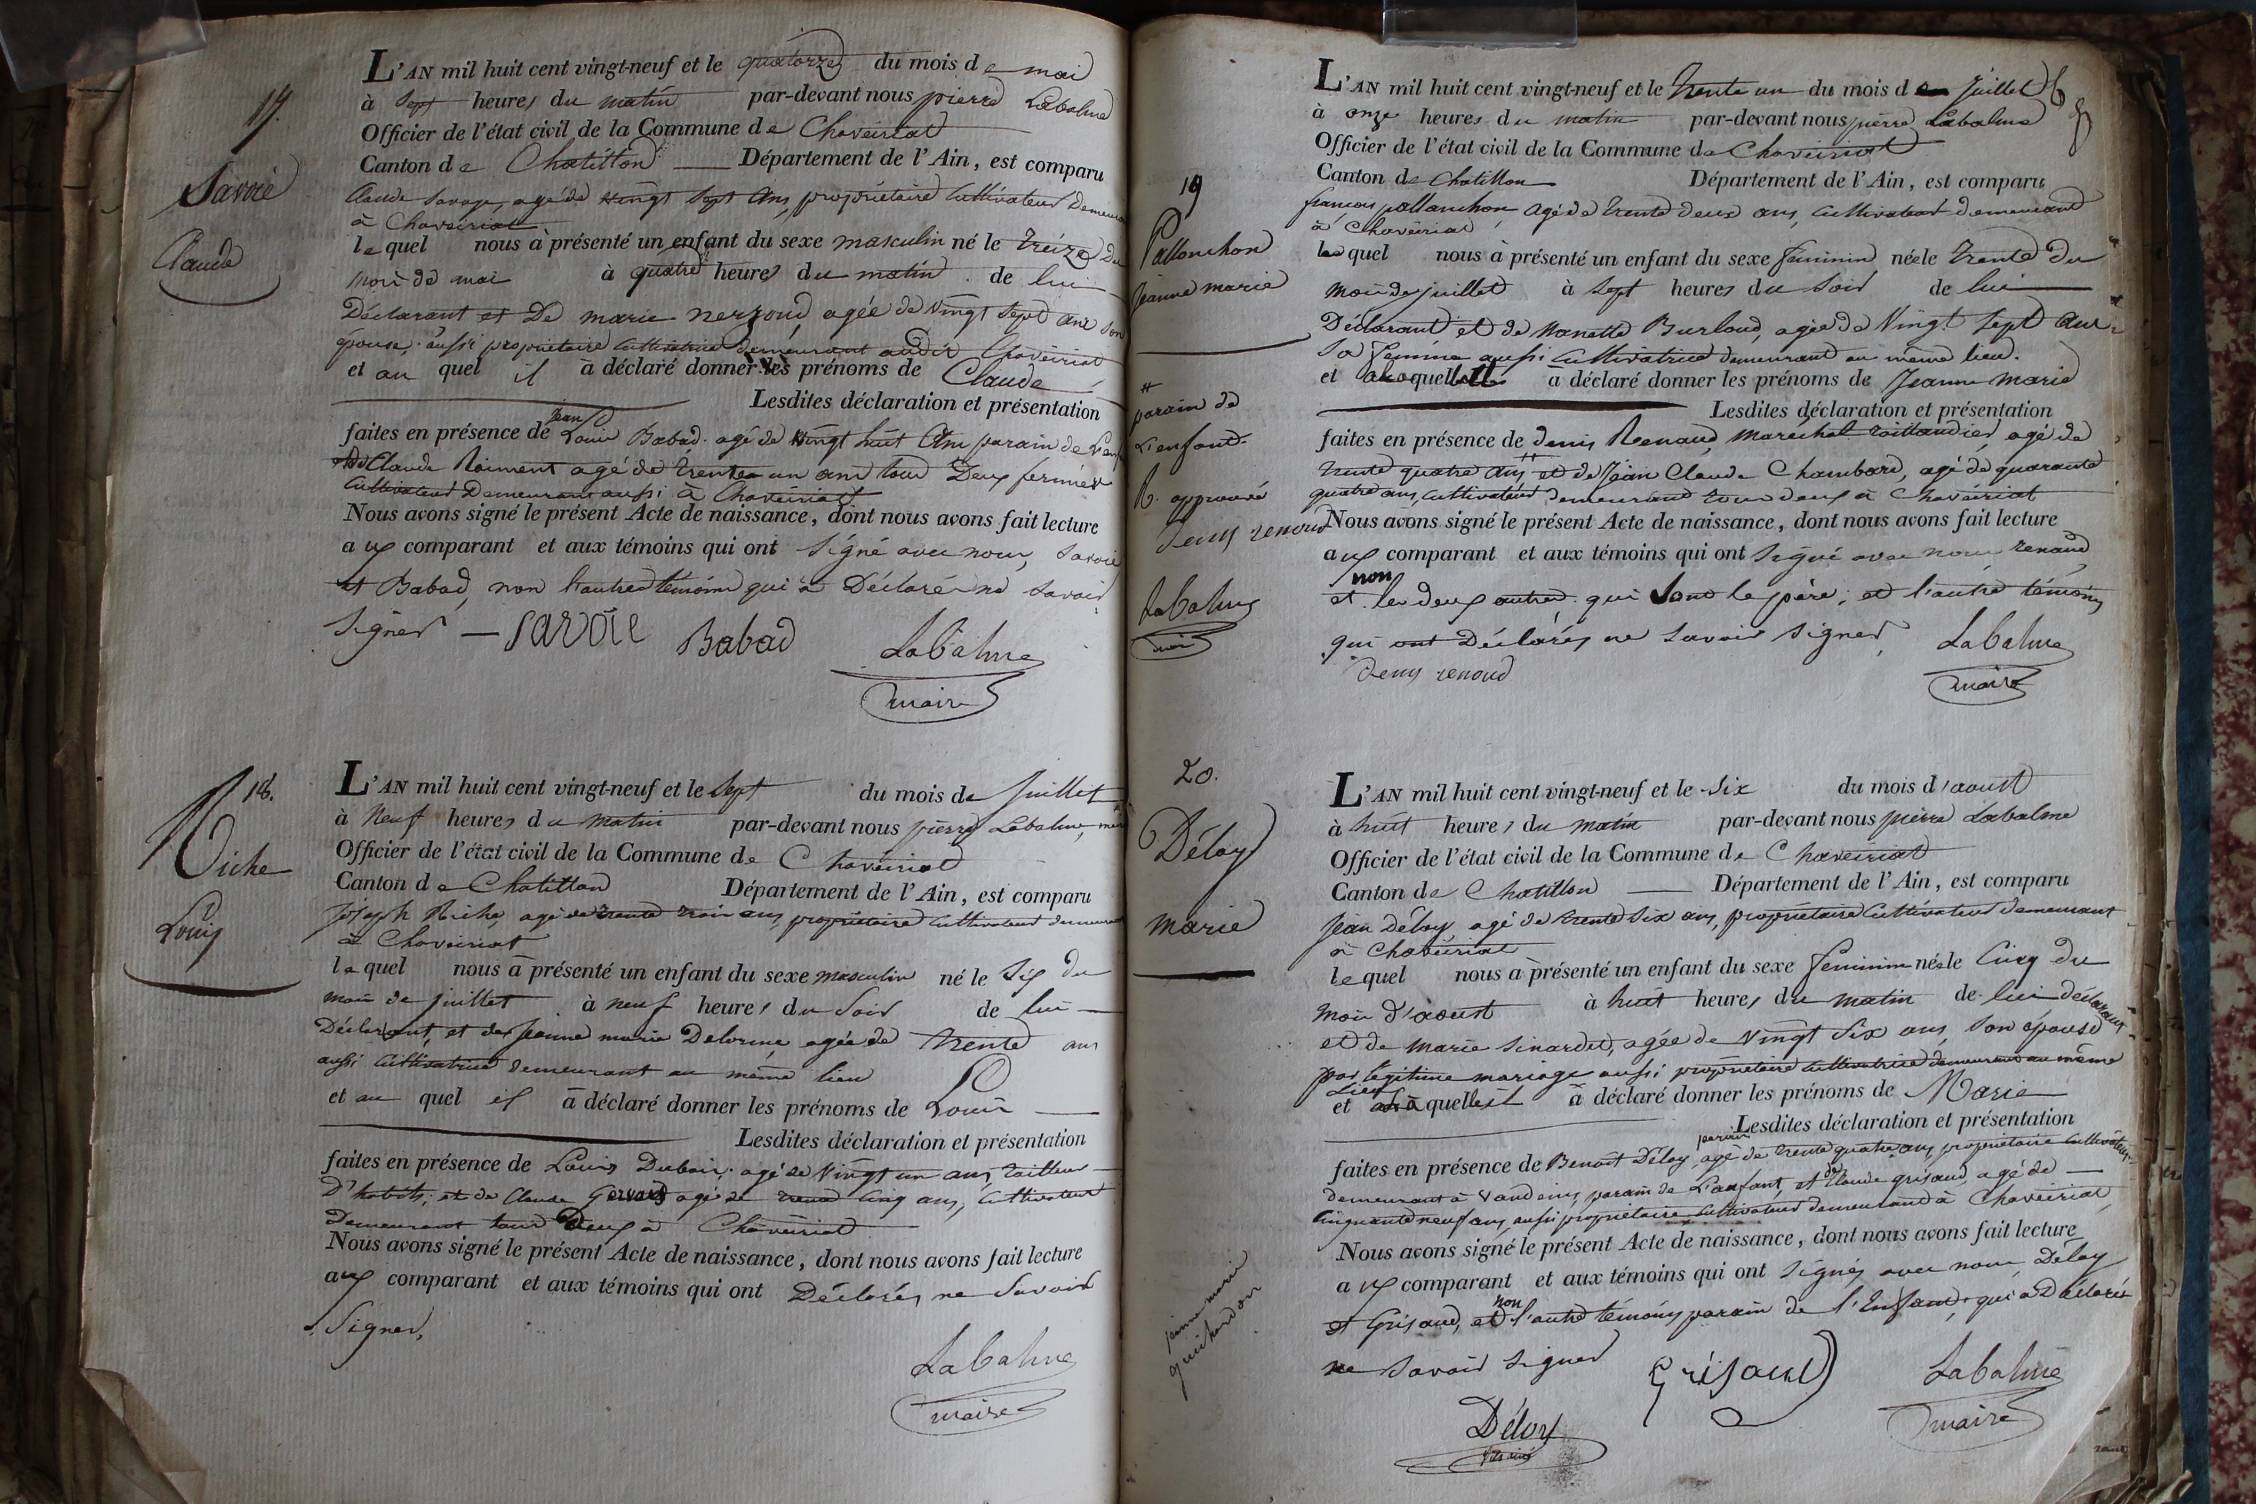 17.
Savoie
Claude
L'AN mil huit cent vingt-neuf et le quatorze du mois de mai
à sept heures du matin par-devant nous pierre Labalme
Officier de l'état civil de la Commune de Chaveiriat
Canton de Chatillon Département de l'Ain, est comparu
Claude Savoye, agé de vingt sept ans, propriétaire cultivateur demeurant
à Chaveiriat
lequel nous à présenté un enfant du sexe masculin né le treize du
mois de mai à quatre heures du matin de lui
Déclarant et De marie nerzoud, agée de vingt sept ans son
épouse, aussi propriétaire cultivatrice demeurant audit Chaveiriat
et au quel il à déclaré donner les prénoms de Claude
Lesdites déclaration et présentation
jean
faites en présence de Louis Babad, agé de vingt huit ans parain de
Claude Roiment agé de trente un ans tous Deux
cultivateurs Demeurant aussi à Chaveiriat
Nous avons signé le présent Acte de naissance, dont nous avons fait lecture
aux comparant et aux témoins qui ont signé avec nous, Savoie
et Babad, non l'autre témoins qui à Déclaré ne savoir
signer — SAVOIE Babad Labalme
maire
18.
Riche
Louis
L'AN mil huit cent vingt-neuf et le sept du mois de juillet
à neuf heures du matin par-devant nous pierre Labalme, maire
Officier de l'état civil de la Commune de Chaveiriat
Canton de Chatillon Département de l'Ain, est comparu
joseph Riche, agé de trente trois ans, propriétaire cultivateur demeurant
à Chaveiriat
lequel nous à présenté un enfant du sexe masculin né le Six du
mois de juillet à neuf heures du soir de lui
Déclarant, et de jeanne marie Delorme, agée de trente ans
aussi cultivatrice demeurant au même lieu
et au quel il à déclaré donner les prénoms de Louis
Lesdites déclaration et présentation
faites en présence de Louis Dubois, agé de vingt un ans, tailleur
D'habits, et de Claude Gervais agé de cinq ans, cultivateur
Demeurant tous Deux à Chaveiriat
Nous avons signé le présent Acte de naissance, dont nous avons fait lecture
aux comparant et aux témoins qui ont Déclarés ne savoir
signer,
Labalme
maire
19
Pallanchon
jeanne marie
parain de
l'enfant
R. approuvé
denis renoud
Labalme
maire
L'AN mil huit cent vingt-neuf et le trente un du mois de juillet
à onze heures du matin par-devant nous pierre Labalme
Officier de l'état civil de la Commune de Chaveiriat
Canton de Chatillon Département de l'Ain, est comparu
françois pallanchon agé de trente deux ans, cultivateur demeurant
à Chaveiriat
lequel nous à présenté un enfant du sexe feminin née le trente du
mois de juillet à sept heures du soir de lui
Déclarant et de Nanette Burloud, agée de vingt sept ans
sa femme aussi cultivatrice demeurant au même lieu.
et à laquelle il à déclaré donner les prénoms de jeanne marie
Lesdites déclaration et présentation
faites en présence de denis Renaud, marechal taillandier, agé de
trente quatre ans et de jean Claude Chambard, agé de quarante
quatre ans, cultivateur demeurant tous deux à Chaveiriat
Nous avons signé le présent Acte de naissance, dont nous avons fait lecture
aux comparant et aux témoins qui ont signé avec nous renaud
non
et les deux autres qui sont le père, et l'autre témoins
qui ont Déclarés ne savoir signer, Labalme
denis renoud maire
20.
Déloy
marie
jeanne marie
guichardon
L'AN mil huit cent vingt-neuf et le six du mois d'aoust
à huit heures du matin par-devant nous pierre Labalme
Officier de l'état civil de la Commune de Chaveiriat
Canton de Chatillon Département de l'Ain, est comparu
jean Déloy, agé de trente six ans, propriétaire cultivateur demeurant
à Chaveiriat
lequel nous à présenté un enfant du sexe feminin née le Cinq du
mois d'aoust à huit heures du matin de lui déclarant
et de marie Sinardet, agée de vingt six ans, son épouse
par légitime mariage aussi propriétaire cultivatrice demeurant au même
Lieu
et à quelle il à déclaré donner les prénoms de Marie
Lesdites déclaration et présentation
parain
faites en présence de Benoit Déloy, agé de trente quatre ans, propriétaire cultivateur
demeurant à Vandeins, parain de l'enfant, et de Claude grisaud, agé de
cinquante neuf ans, aussi propriétaire cultivateur demeurant à Chaveiriat
Nous avons signé le présent Acte de naissance, dont nous avons fait lecture
aux comparant et aux témoins qui ont signés avec nous Déloy
non
et Grisaud, et l'autre témoins parain de l'enfant, qui à Déclaré
ne savoir signer Grisaud Labalme
maire
Déloy